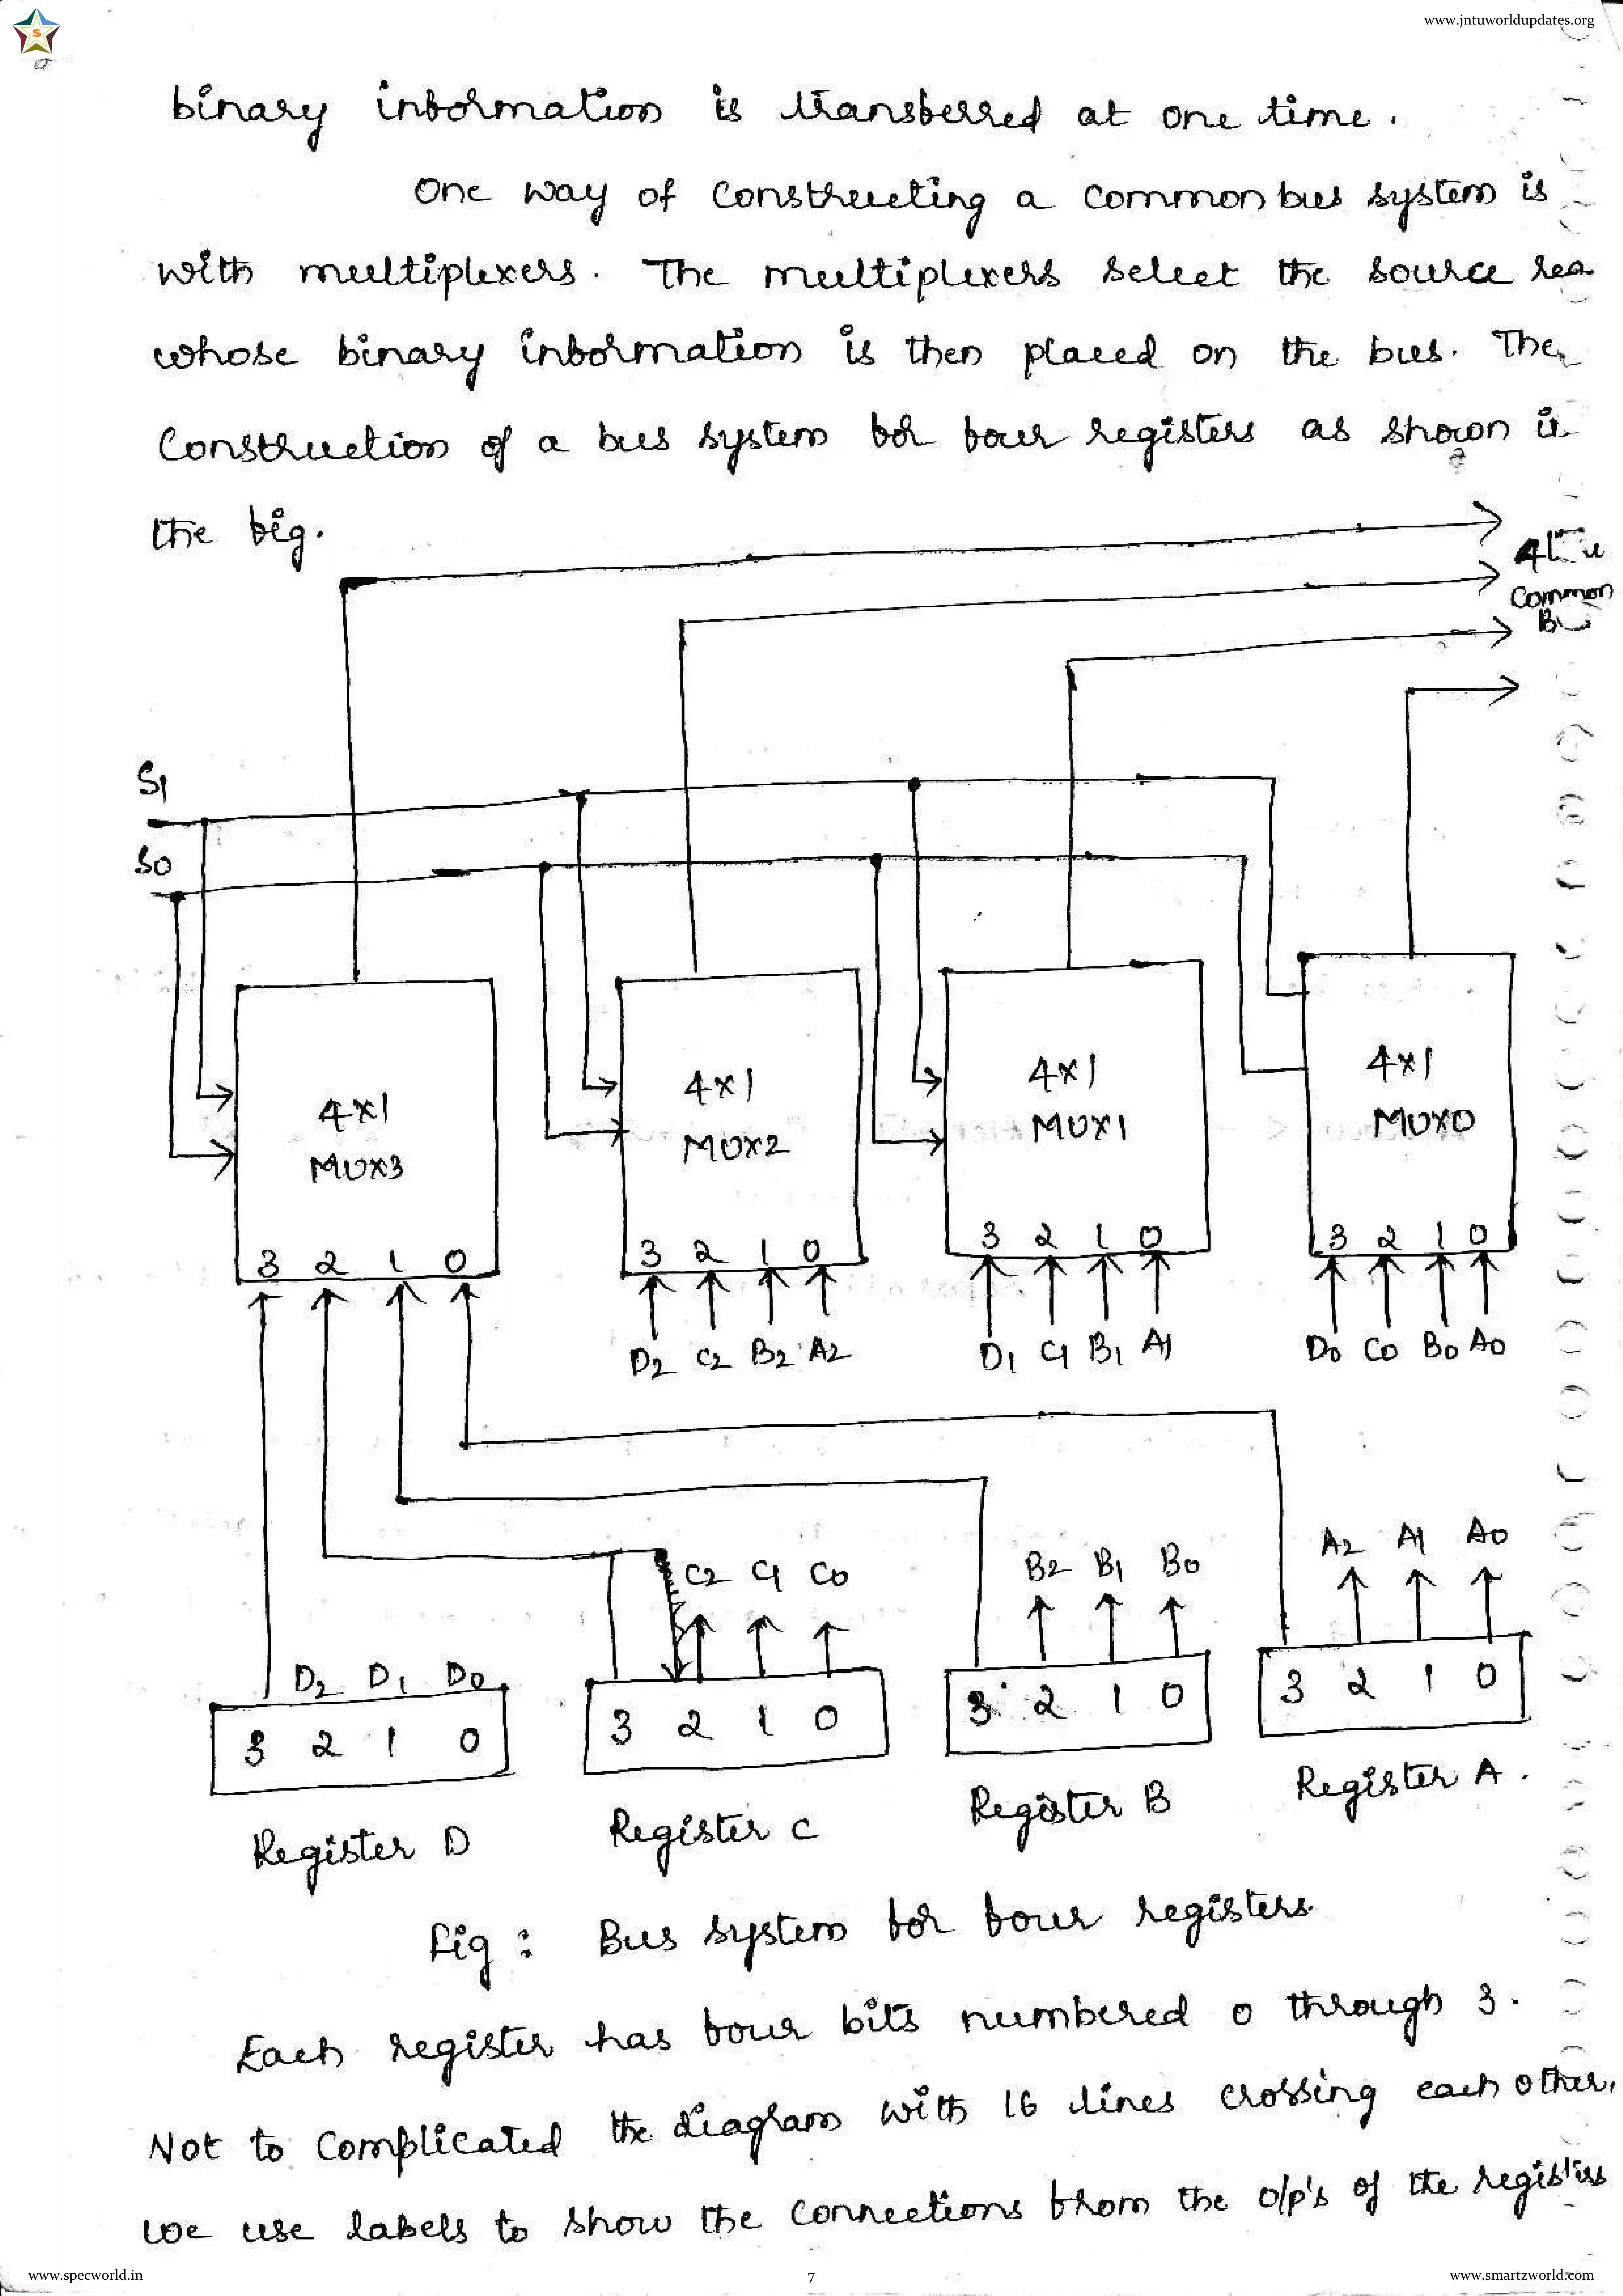 www.jntuworldupdates.org
S
binary information is transferred at one time.
One way of constructing a common bus system is
with multiplexers. The multiplexers select the source
whose binary information is then placed on the bus. The
Construction of a bus system for four registers as shown
the fig.
4
Common
S1
S0
4x1 4x1 4x1 4x1
MUX3 MUX2 MUX1 MUX0
3 2 1 0 3 2 1 0 3 2 1 0 3 2 1 0
D2 C2 B2 A2 D1 C1 B1 A1 D0 C0 B0 A0
A2 A1 A0
C2 C1 C0 B2 B1 B0
D2 D1 D0
3 2 1 0 3 2 1 0 3 2 1 0 3 2 1 0
Register D Register C Register B Register A.
Fig : Bus system for four registers
Each register has four bits numbered 0 through 3.
Not to complicated the diagram with 16 lines crossing each other,
we use labels to show the connections from the o/p's of the registers
www.specworld.in 7 www.smartzworld.com